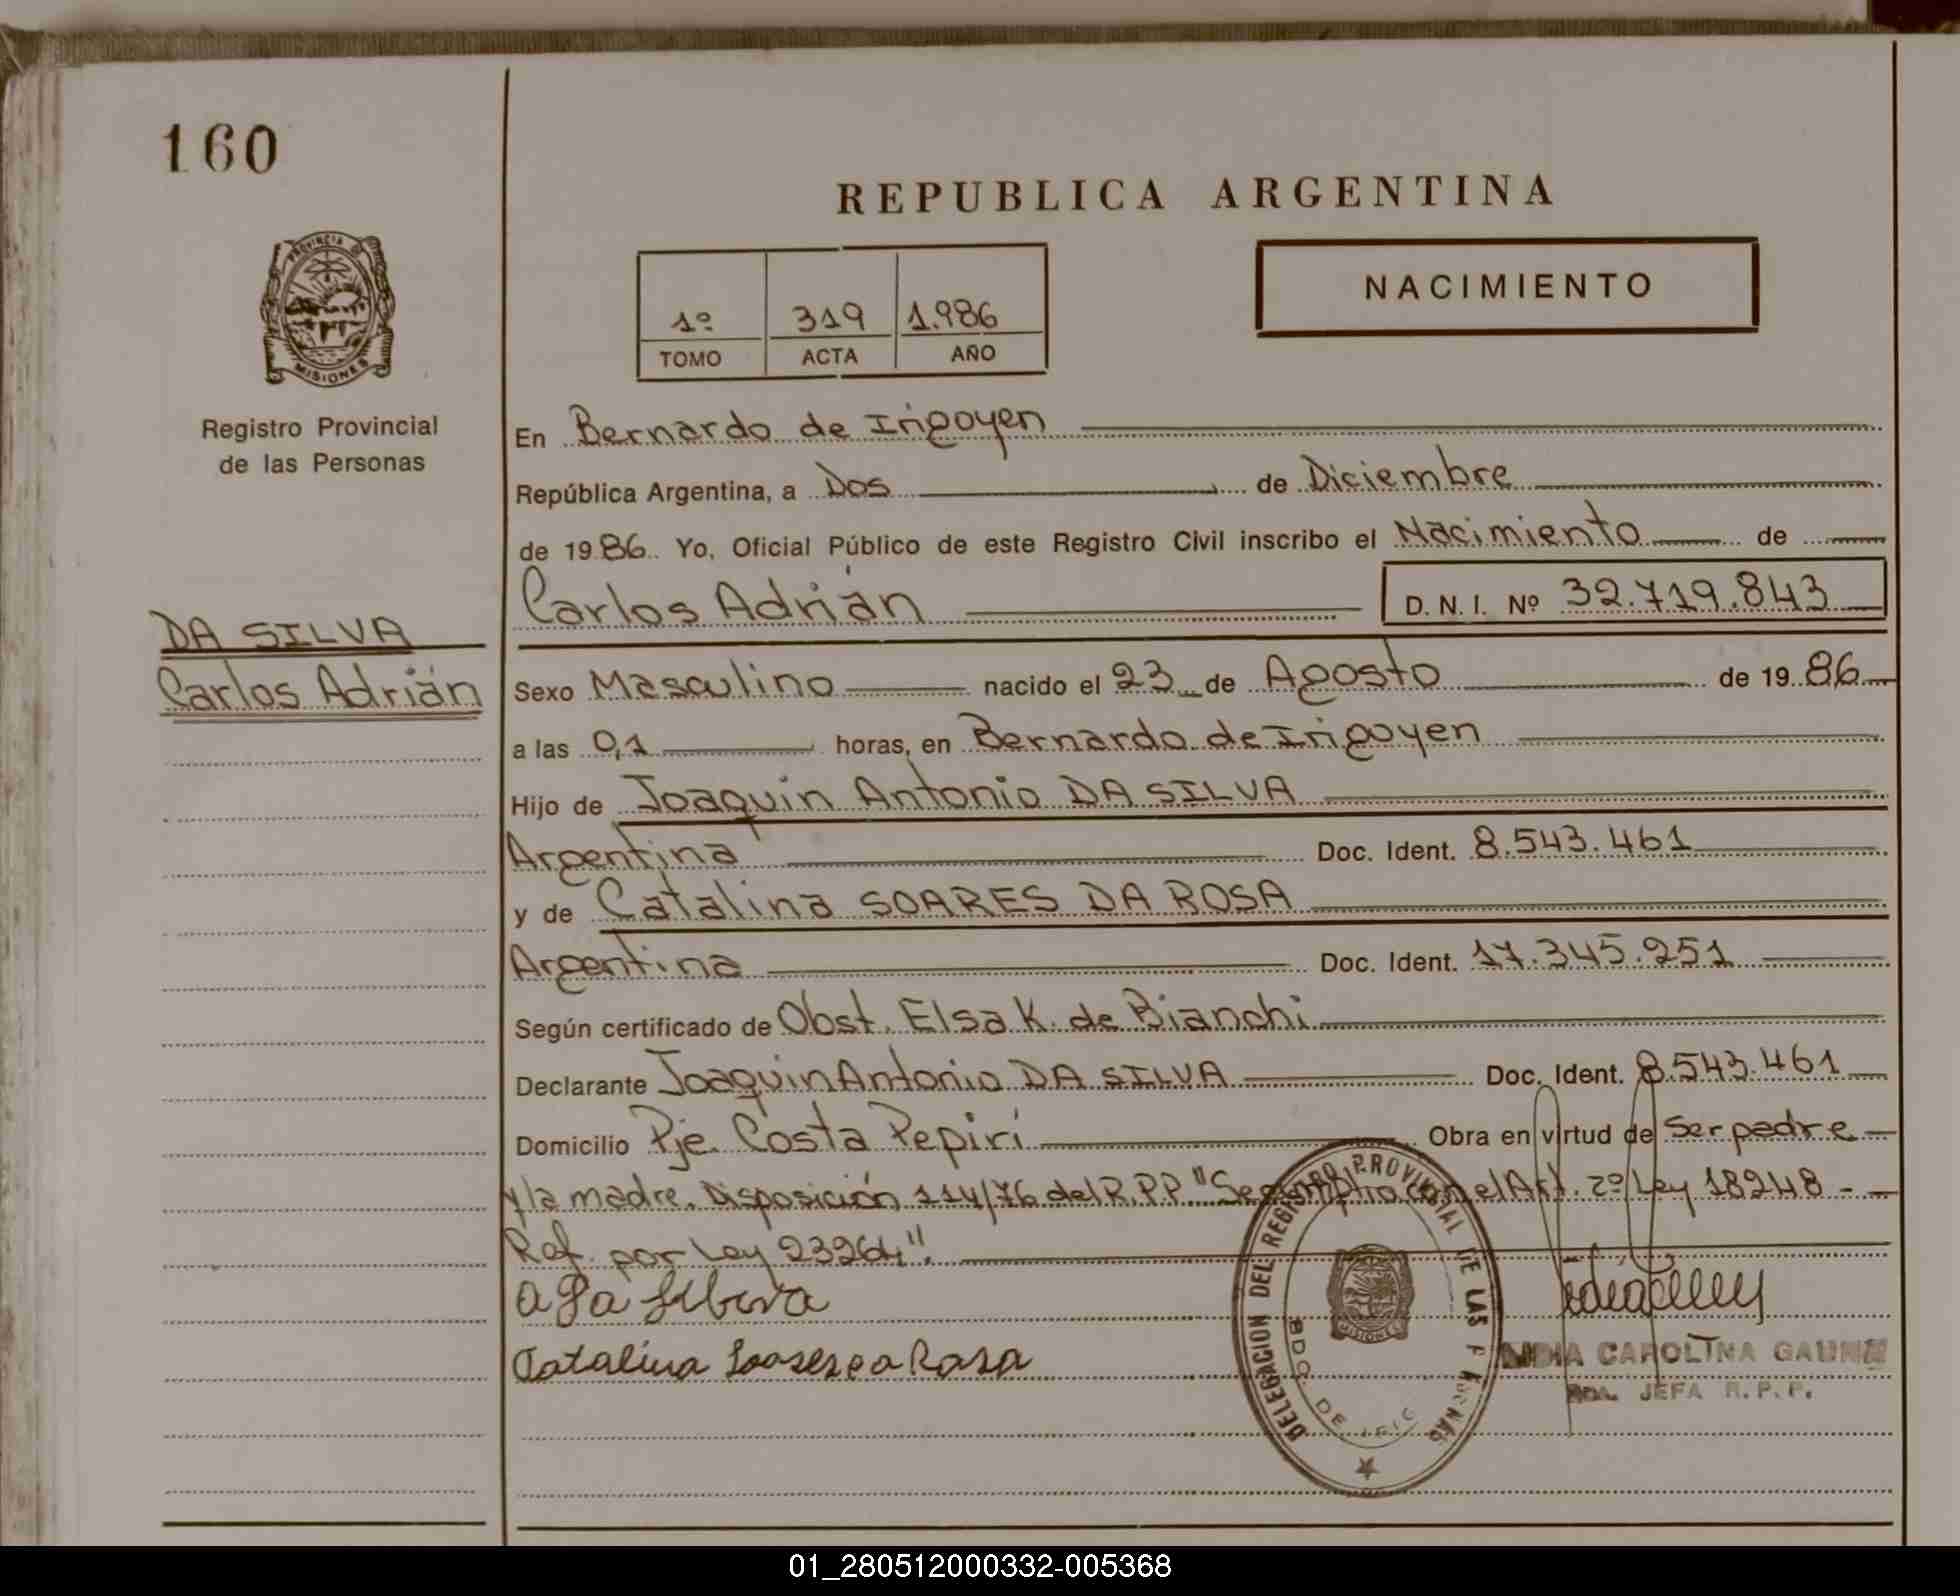 160
REPUBLICA ARGENTINA
PROVINCIA DE
MISIONES
Registro Provincial
de las Personas
1º 319 1.986
TOMO ACTA AÑO
NACIMIENTO
En Bernardo de Irigoyen
República Argentina, a Dos de Diciembre
de 1986. Yo, Oficial Público de este Registro Civil inscribo el Nacimiento de
Carlos Adrián D. N. I. Nº 32.719.843
DA SILVA
Carlos Adrián
Sexo Masculino nacido el 23 de Agosto de 1986
a las 0,1 horas, en Bernardo de Irigoyen
Hijo de Joaquin Antonio DA SILVA
Argentina Doc. Ident. 8.543.461
y de Catalina SOARES DA ROSA
Argentina Doc. Ident. 17.345.251
Según certificado de Obst. Elsa K. de Bianchi
Declarante Joaquin Antonio DA SILVA Doc. Ident. 8.543.461
Domicilio Pje. Costa Pepirí Obra en virtud de Ser padre
y la madre. Disposición 114/76 del R.P.P. el Art. 2º Ley 18248 -
Ref. por Ley 23264".
Catalina
DELEGACION DEL REGISTRO PROVINCIAL DE LAS PERSONAS
BDO. DE IRIG
MISIONES
CAROLINA
JEFA R. P. P.
01_280512000332-005368